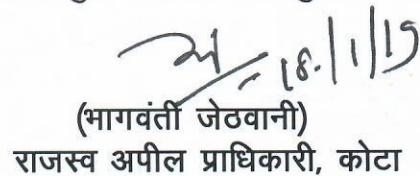 18/1/19
(भागवंती जेठवानी)
राजस्व अपील प्राधिकारी, कोटा